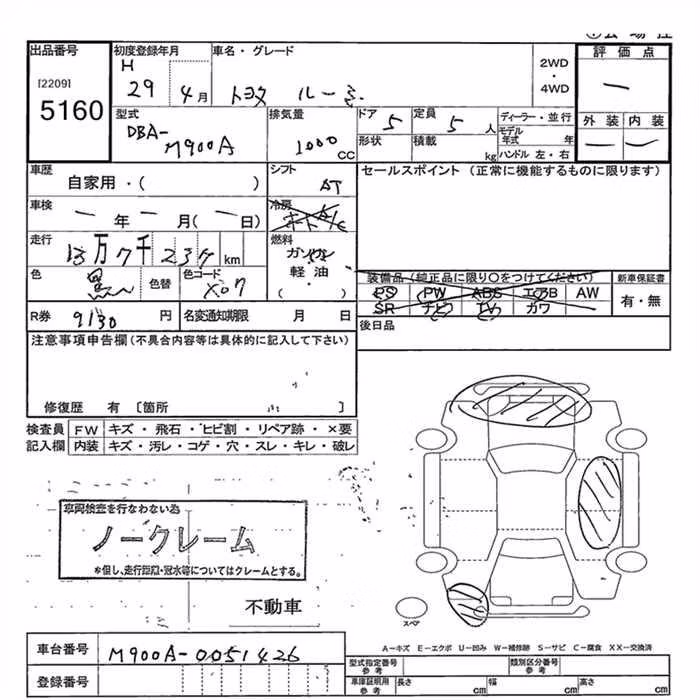 出品番号
[2209]
5160
初度登録年月
H
29 4月
車名・グレード
トヨタ ルーミ
2WD
・
4WD
評価点
―
外装 内装
型式
DBA-
M900A
排気量
1000
CC
ドア
5
定員
5 人
形状
積載
kg
ディーラー・並行
モデル
年式 年
ハンドル 左・右
車歴
自家用・( )
シフト
AT
セールスポイント (正常に機能するものに限ります)
車検
― 年 ― 月(― 日)
冷房
走行
13万7千237km
燃料
ガソリン
軽油
・
( )
色
黒
色替
色コード
X07
装備品(純正品に限り○をつけてください)
PS PW ABS エアB AW
SR ナビ TV カワ
新車保証書
有・無
R券
9130 円
名変通知期限 月 日
後日品
注意事項申告欄(不具合内容等は具体的に記入して下さい)
修復歴 有 〔箇所 〕
検査員
記入欄
FW キズ・飛石・ヒビ割・リペア跡・×要
内装 キズ・汚レ・コゲ・穴・スレ・キレ・破レ
車両検査を行なわない為
ノークレーム
*但し、走行距離・冠水等についてはクレームとする。
不動車
スペア
A―キズ E―エクボ U―凹み W―補修跡 S―サビ C―腐食 XX―交換済
車台番号
M900A-0051426
登録番号
型式指定番号
参考
類別区分番号
参考
車庫証明用
参考
長さ cm
幅 cm
高さ cm